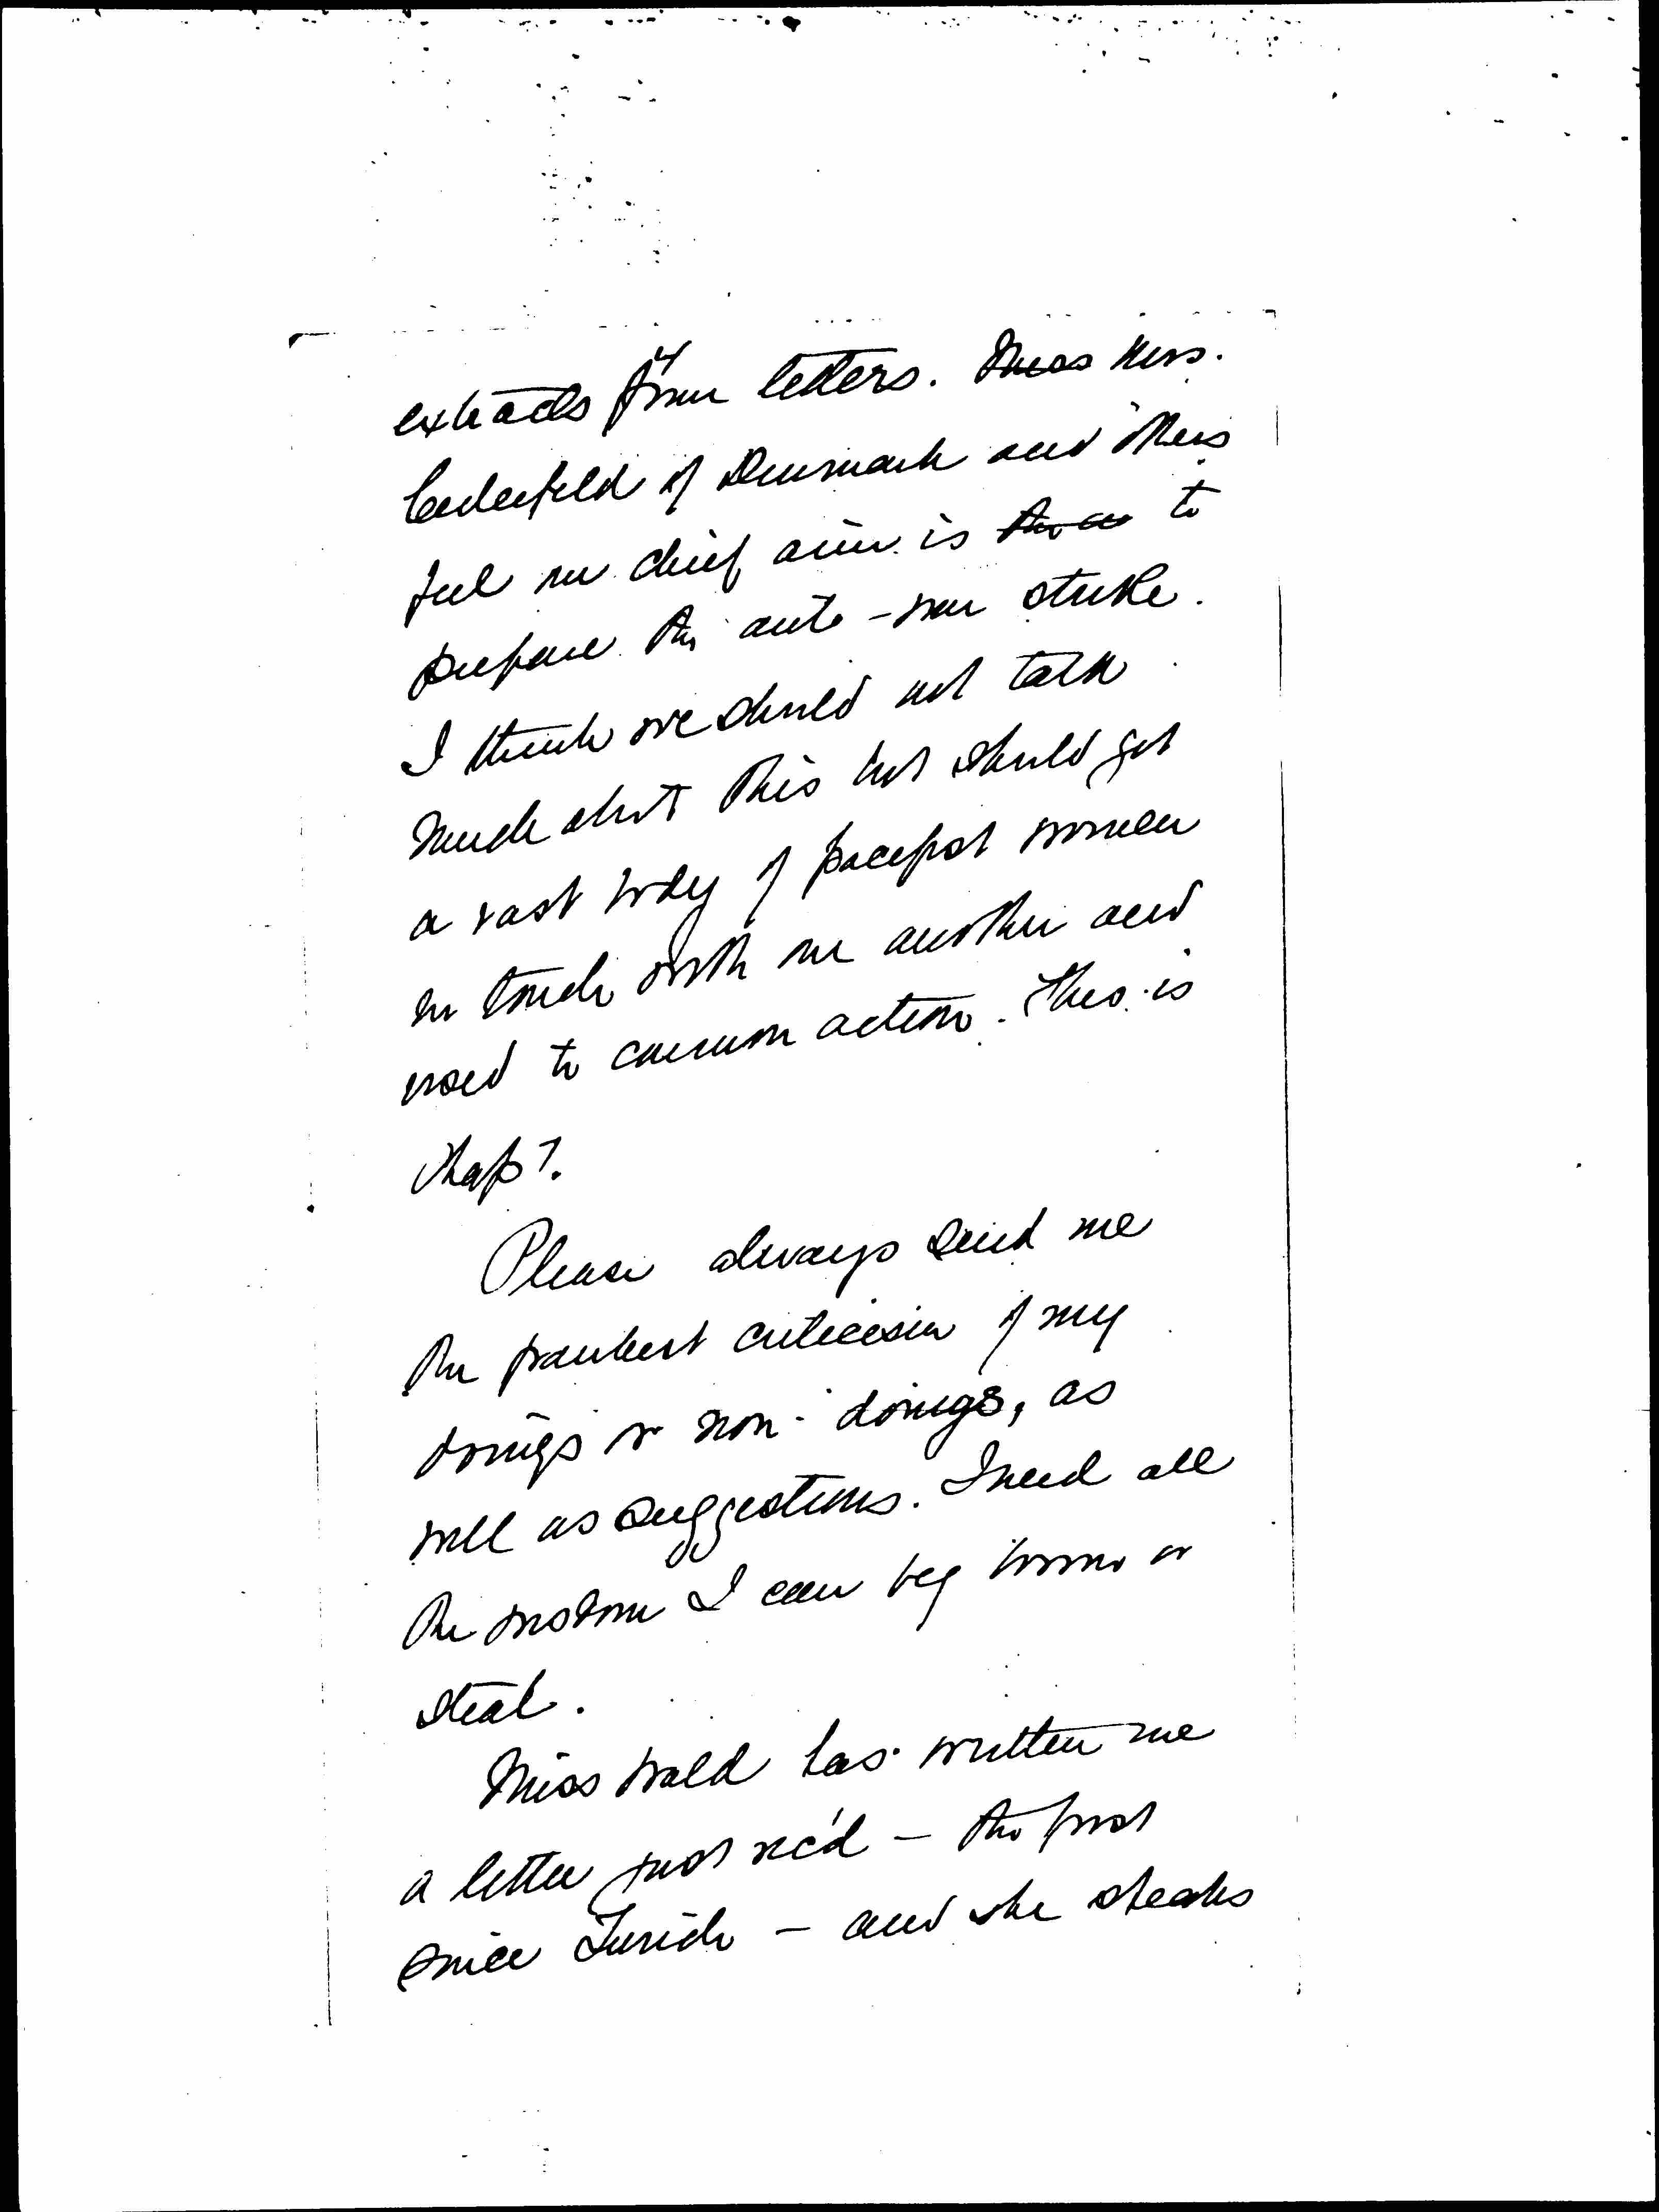 4
extracts from letters. Miss Mrs.
Cederfeld of Denmark and others
feel our chief aim is the to
prepare the anti-war strike.
I think we should not talk
much about this but should get
a vast body of pacifist women
in touch with one another and
used to common action. This is
shop?.
Please always send me
the frankest criticism of my
doings or non-doings, as
well as suggestions. I need all
the wisdom I can beg borrow or
steal.
Miss Wald has written me
a letter just rec'd – the first
since Zurich – and she speaks